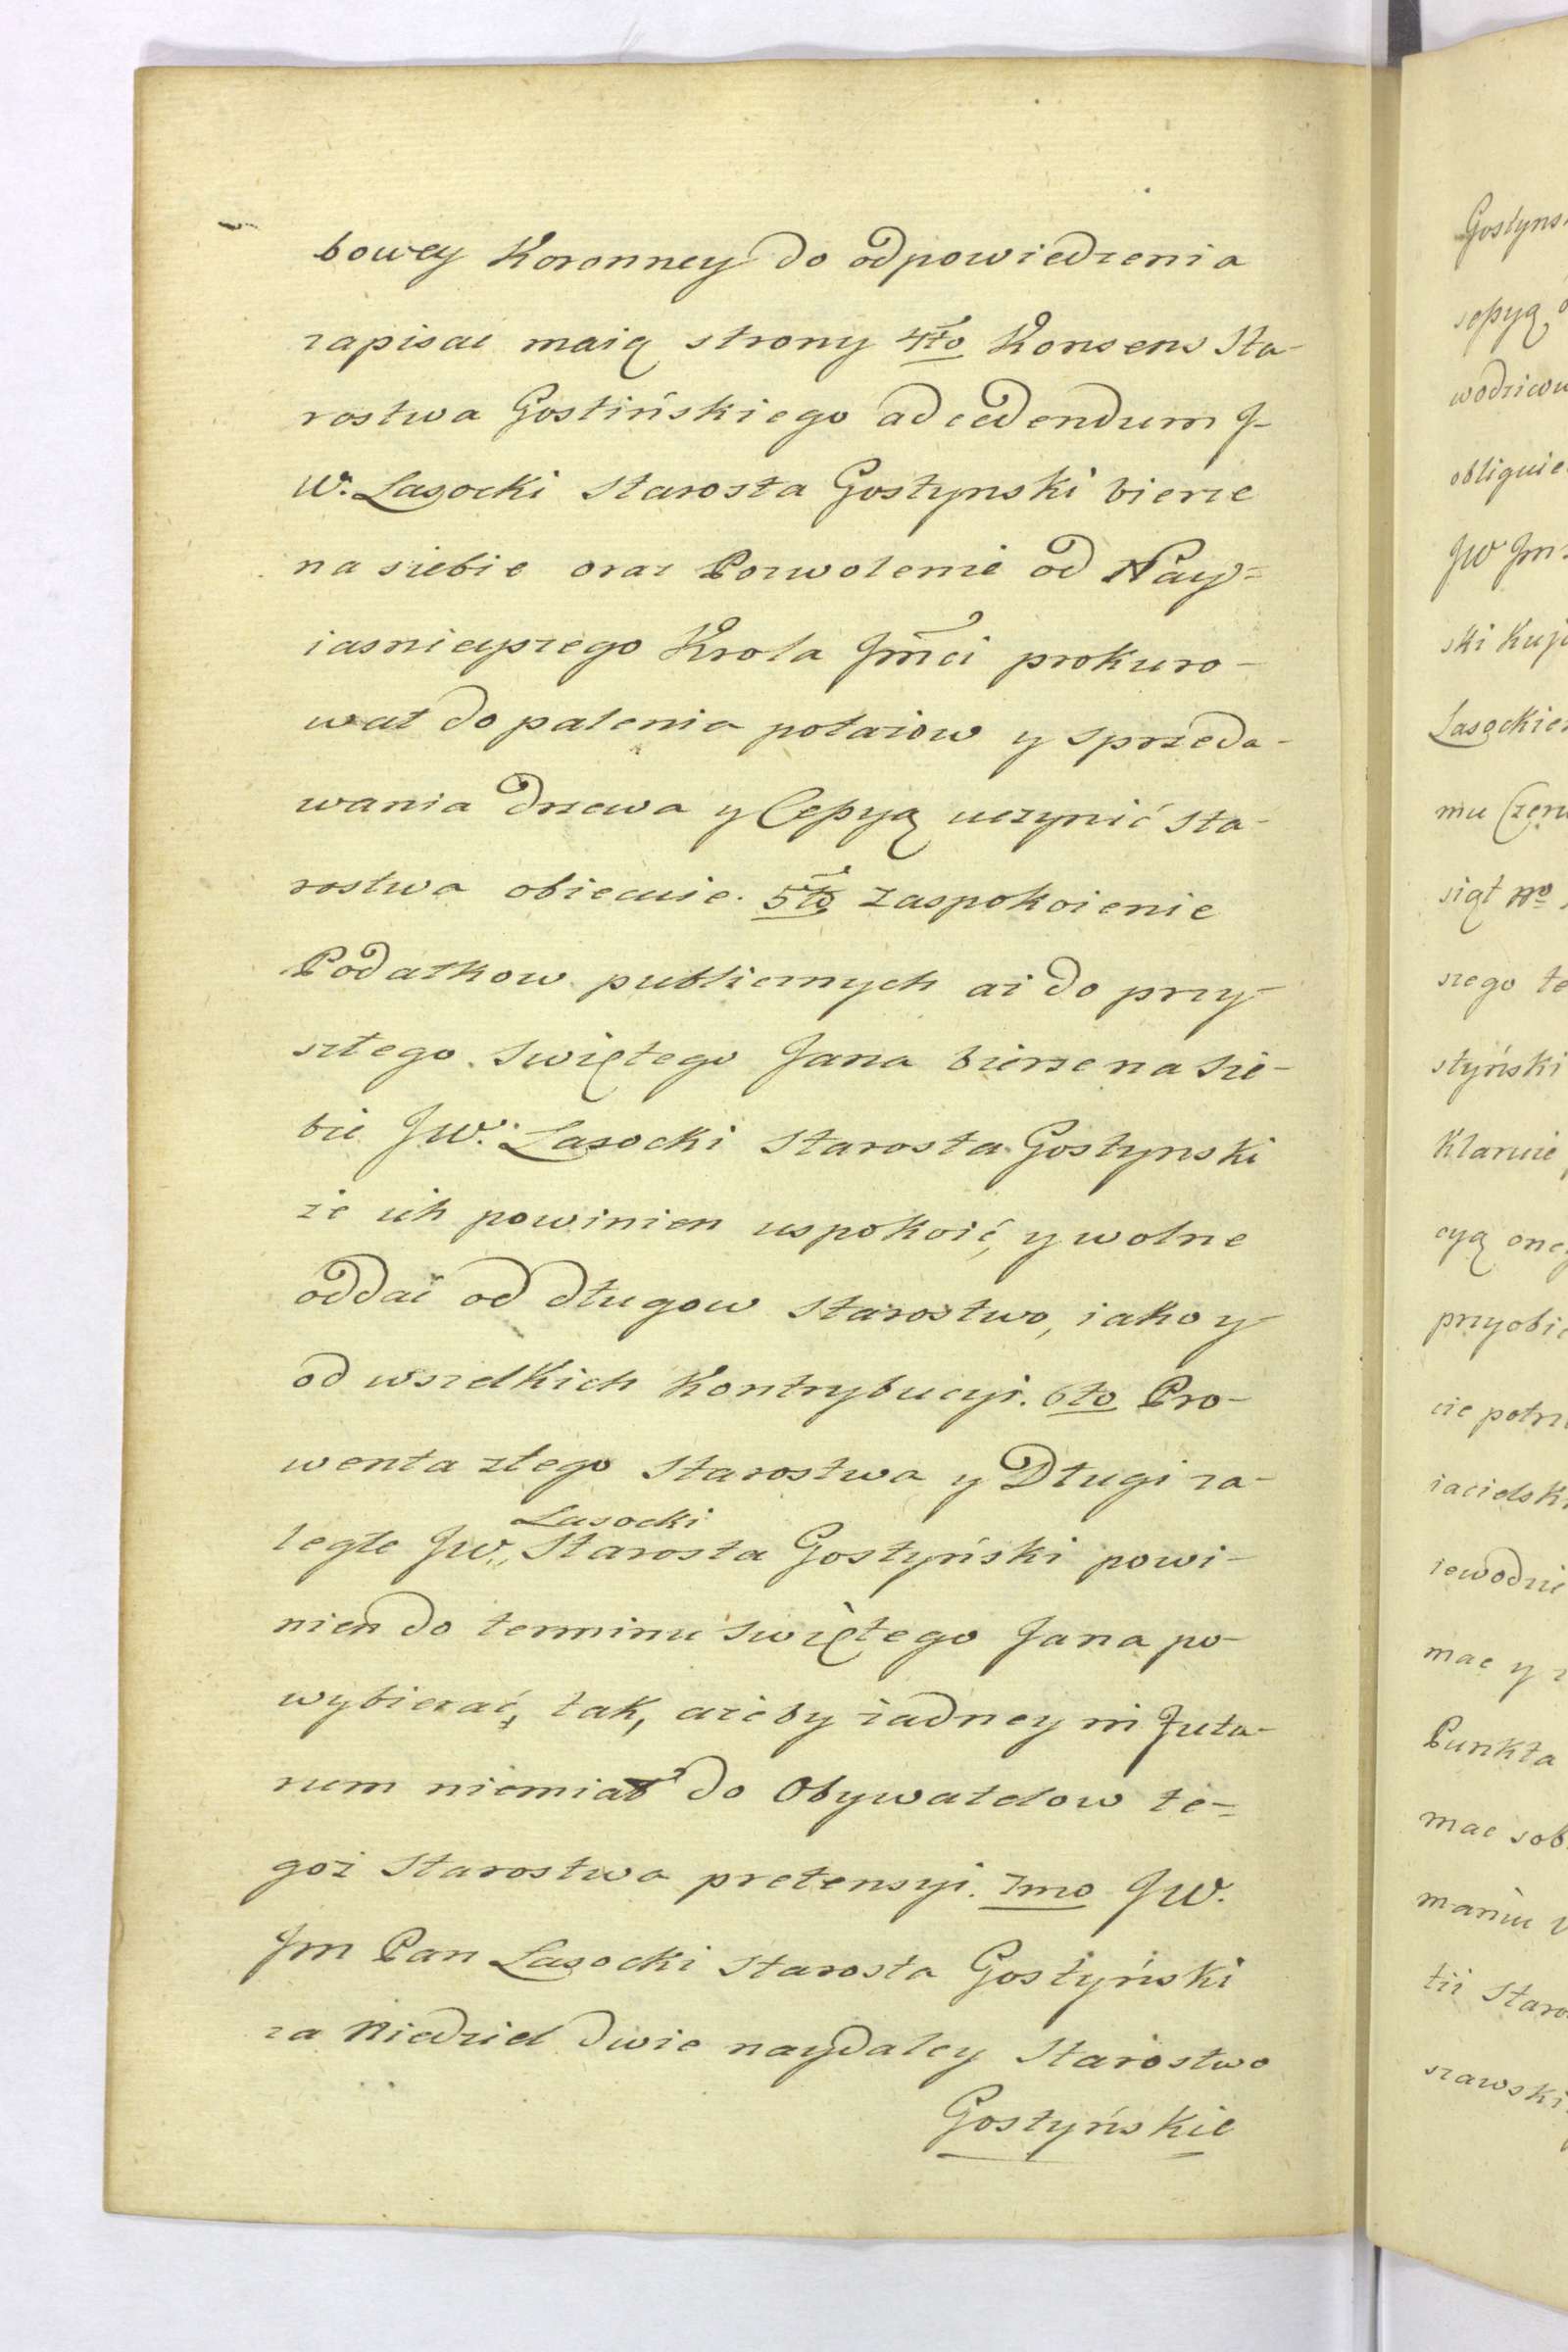 bowey Koronney do odpowiedzenia
zapisać maią strony 4to Konsens Sta-
rostwa Gostińskiego ad cedendum J-
W. Lasocki Starosta Gostynski bierze
na siebie oraz Pozwolenie od Nay=
iasnieyszego Krola Jmci prokuro-
wać do palenia potażow y sprzeda-
wania drzewa y Cessyą uczynić Sta-
rostwa obiecuie. 5to Zaspokoienie
Podatkow publicznych aż do przy-
szłego Swiętego Jana bierze na Sie-
bie JW. Lasocki Starosta Gostynski
że ich powinien uspokoić, y wolne
oddać od długow Starostwo, iako y
od wszelkich Kontrybucyi. 6to Pro-
wenta ztego Starostwa y Długi za-
Lasocki
ległe JW. Starosta Gostyński powi-
nien do terminu Swiętego Jana po-
wybierać, tak, ażeby żadney in futu-
rum niemiał do Obywatelow te=
goż Starostwa pretensyi. 7mo JW.
Jm Pan Lasocki Starosta Gostyński
za Niedziel dwie naydaley Starostwo
Gostyńskie
Gostyns
wodziew
obliguie
JW Jm
ski Kuj
Lasockie
mu Czer
siąt No
szego te
styński
Klaruie
cyą oney
przyobie
cie potrz
iacielski
iewodzie
mac y z
Punkta
mac sob
maniu
tii Staro
szawski